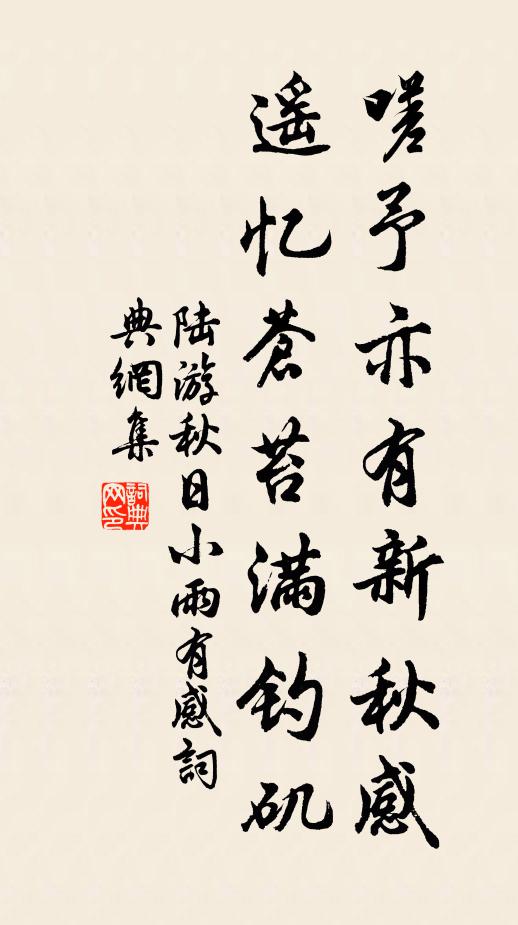 嗟予亦有新秋感
遥忆苍苔满钓矶
陆游秋日小雨有感詞
典網集
詞典
网印